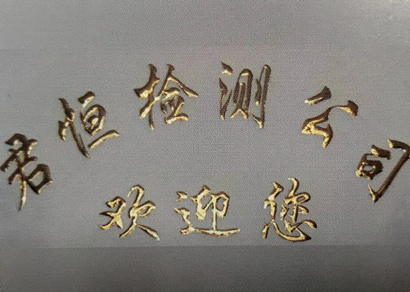 君恒检测公司
欢迎您